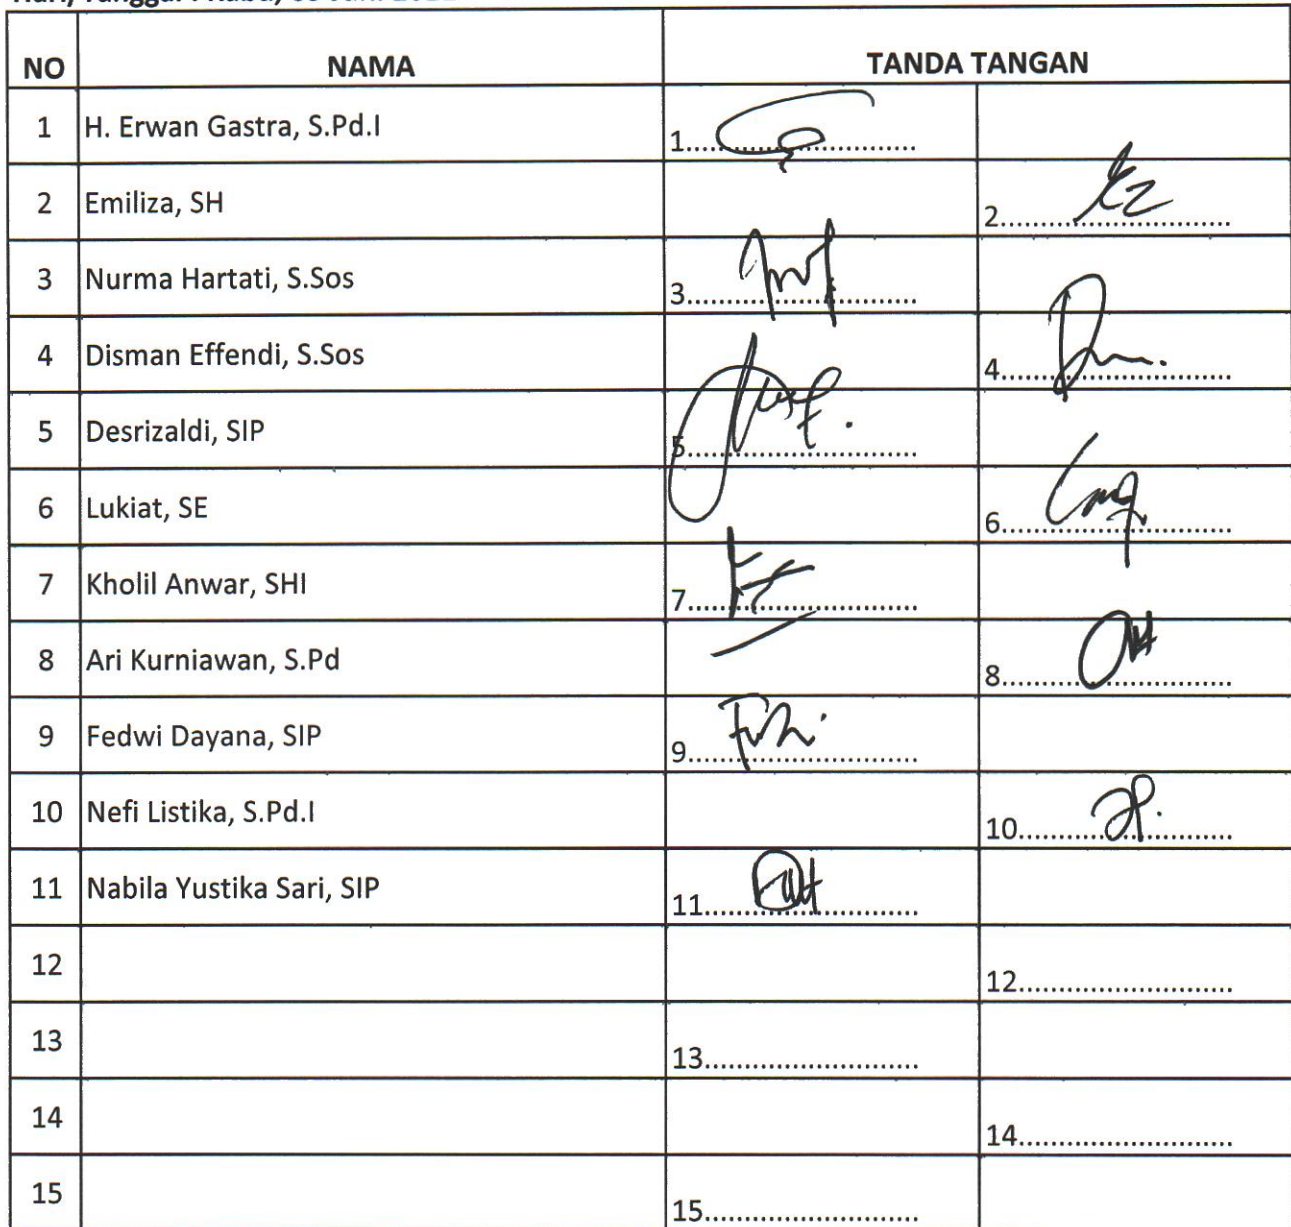 NO NAMA TANDA TANGAN
1 H. Erwan Gastra, S.Pd.I 1..............................
2 Emiliza, SH 2..............................
3 Nurma Hartati, S.Sos 3..............................
4 Disman Effendi, S.Sos 4..............................
5 Desrizaldi, SIP 5..............................
6 Lukiat, SE 6..............................
7 Kholil Anwar, SHI 7..............................
8 Ari Kurniawan, S.Pd 8..............................
9 Fedwi Dayana, SIP 9..............................
10 Nefi Listika, S.Pd.I 10..............................
11 Nabila Yustika Sari, SIP 11..............................
12 12..............................
13 13..............................
14 14..............................
15 15..............................